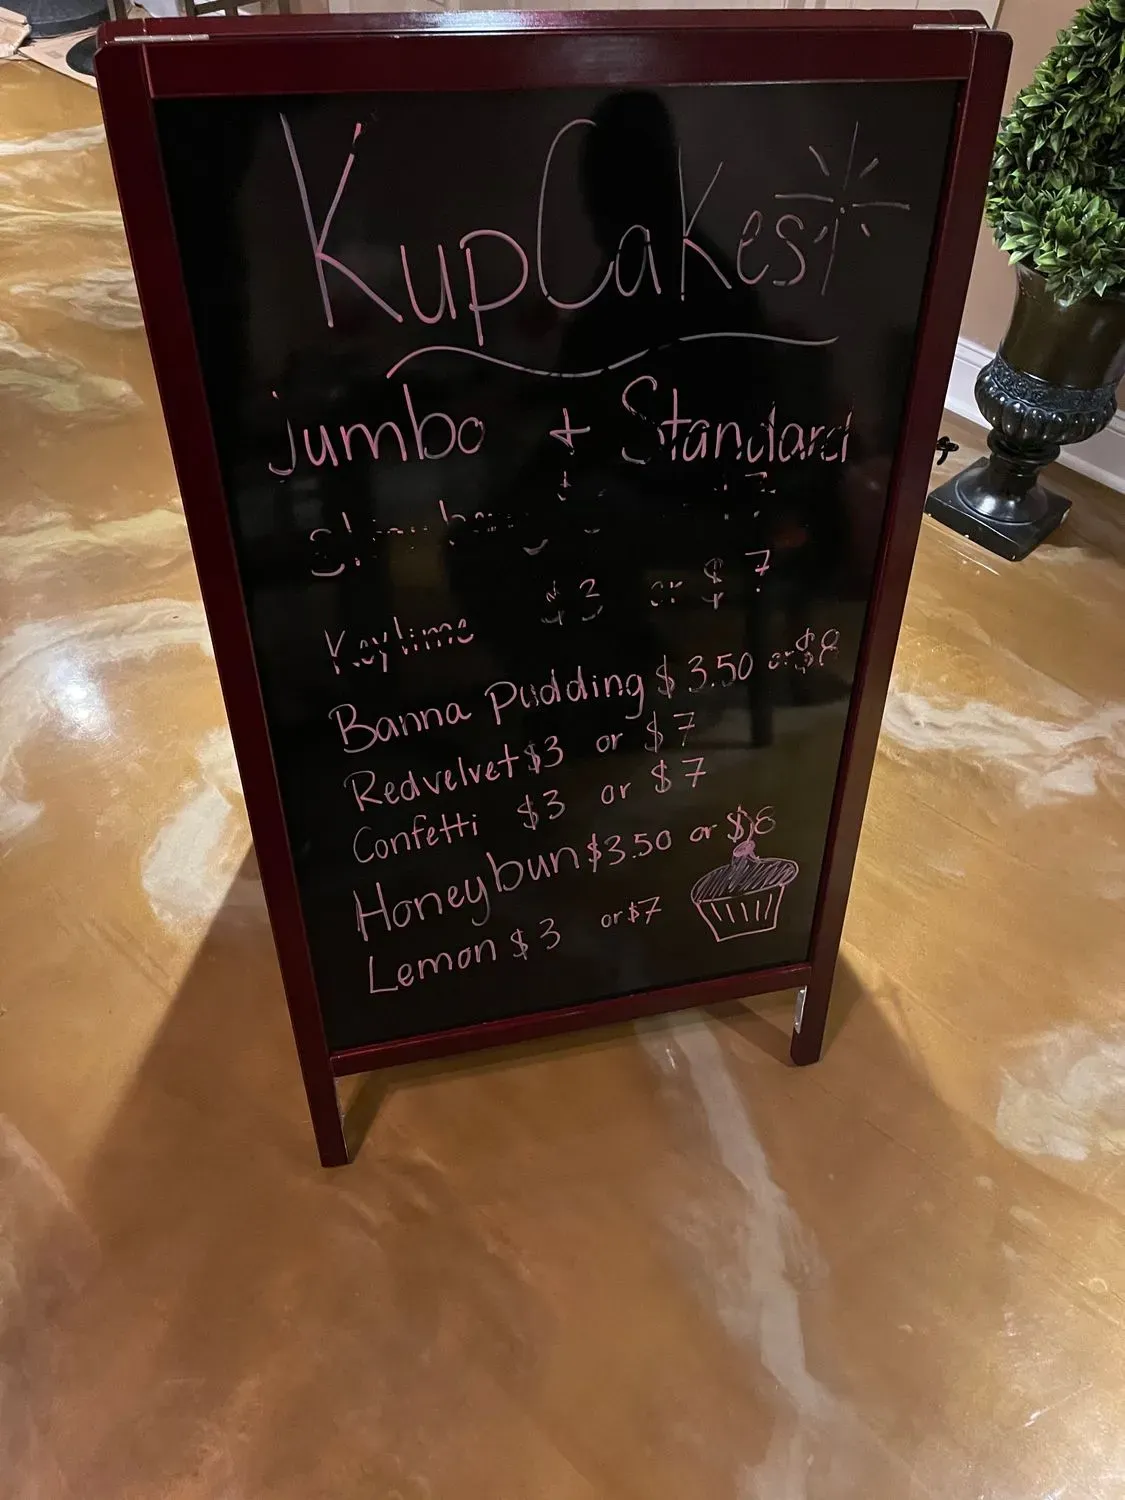 KupCakes!
Jumbo + Standard
Keylime $3 or $7
Banna Pudding $3.50 or $8
Redvelvet $3 or $7
Confetti $3 or $7
Honeybun $3.50 or $8
Lemon $3 or $7